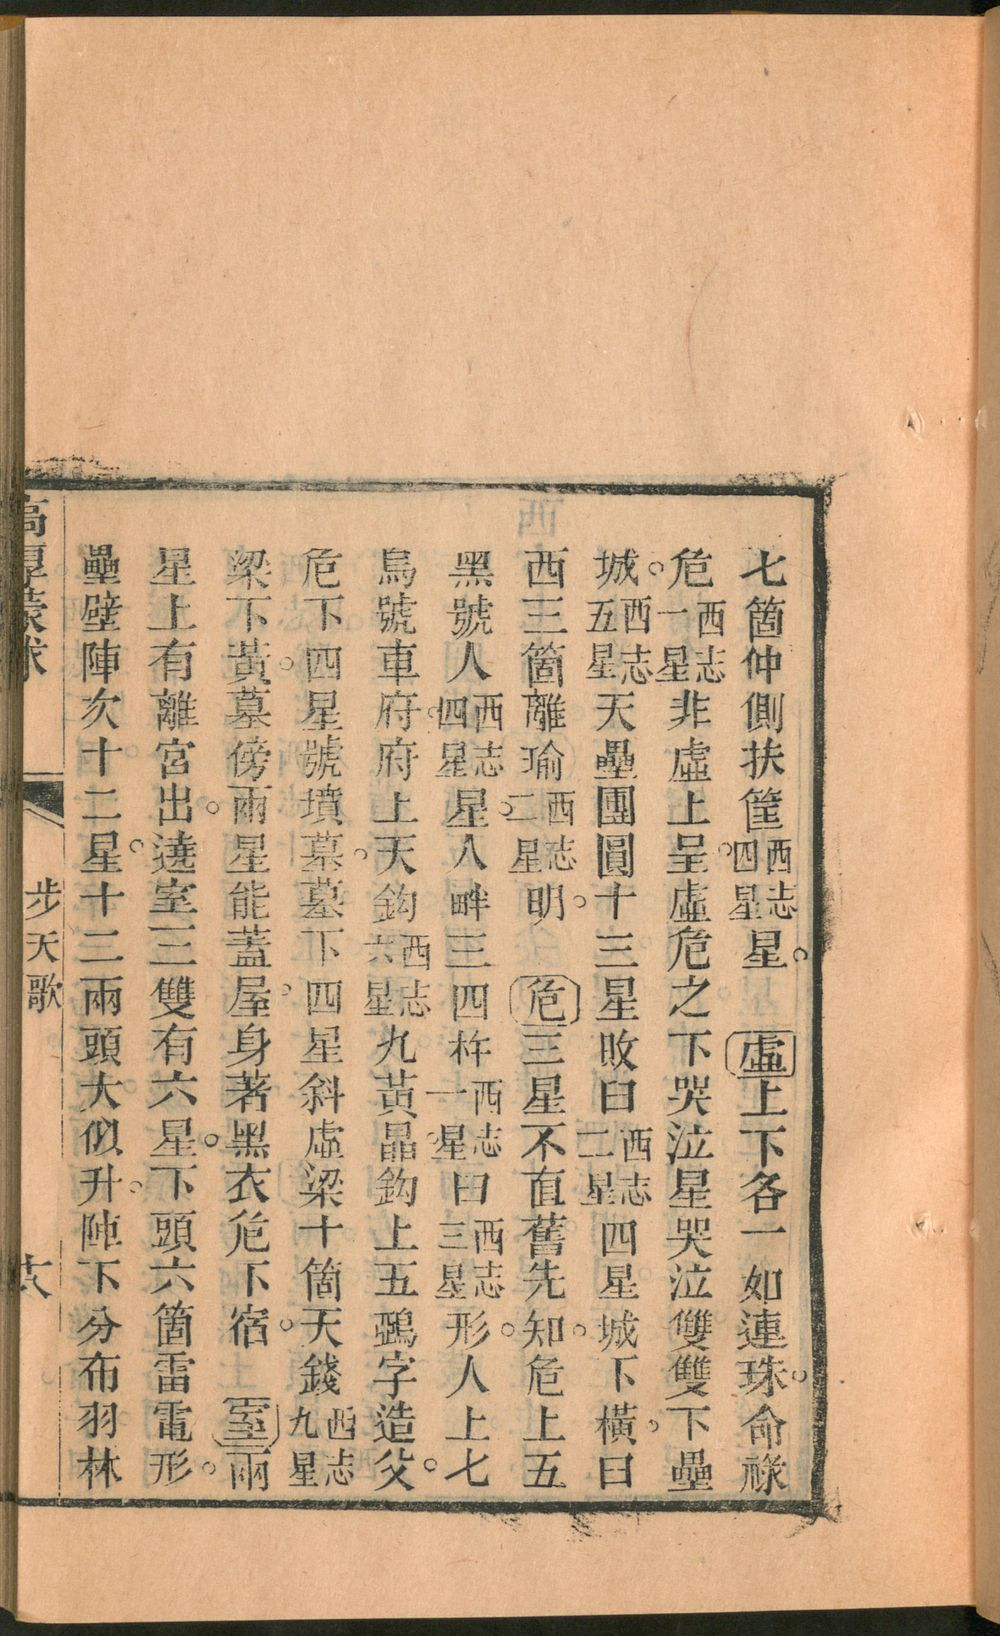 七箇仲側扶筐西志四星星虛上下各一如連珠命祿
危西志一星非虛上呈虛危之下哭泣星哭泣雙雙下壘
城西志五星天壘團圓十三星敗臼西志二星四星城下橫臼
西三箇離瑜西志二星明危三星不直舊先知危上五
黑號人西志四星星人畔三四杵西志一星臼西志三星形人上七
烏號車府府上天鈎西志六星九黃晶鈎上五鵶字造父
危下四星號墳墓墓下四星斜虛梁十箇天錢西志九星
梁下黃墓傍兩星能蓋屋身著黑衣危下宿室兩
星上有離宮出遶室三雙有六星下頭六箇雷電形
壘壁陣次十二星十二兩頭大似升陣下分布羽林
高厚蒙求
步天歌